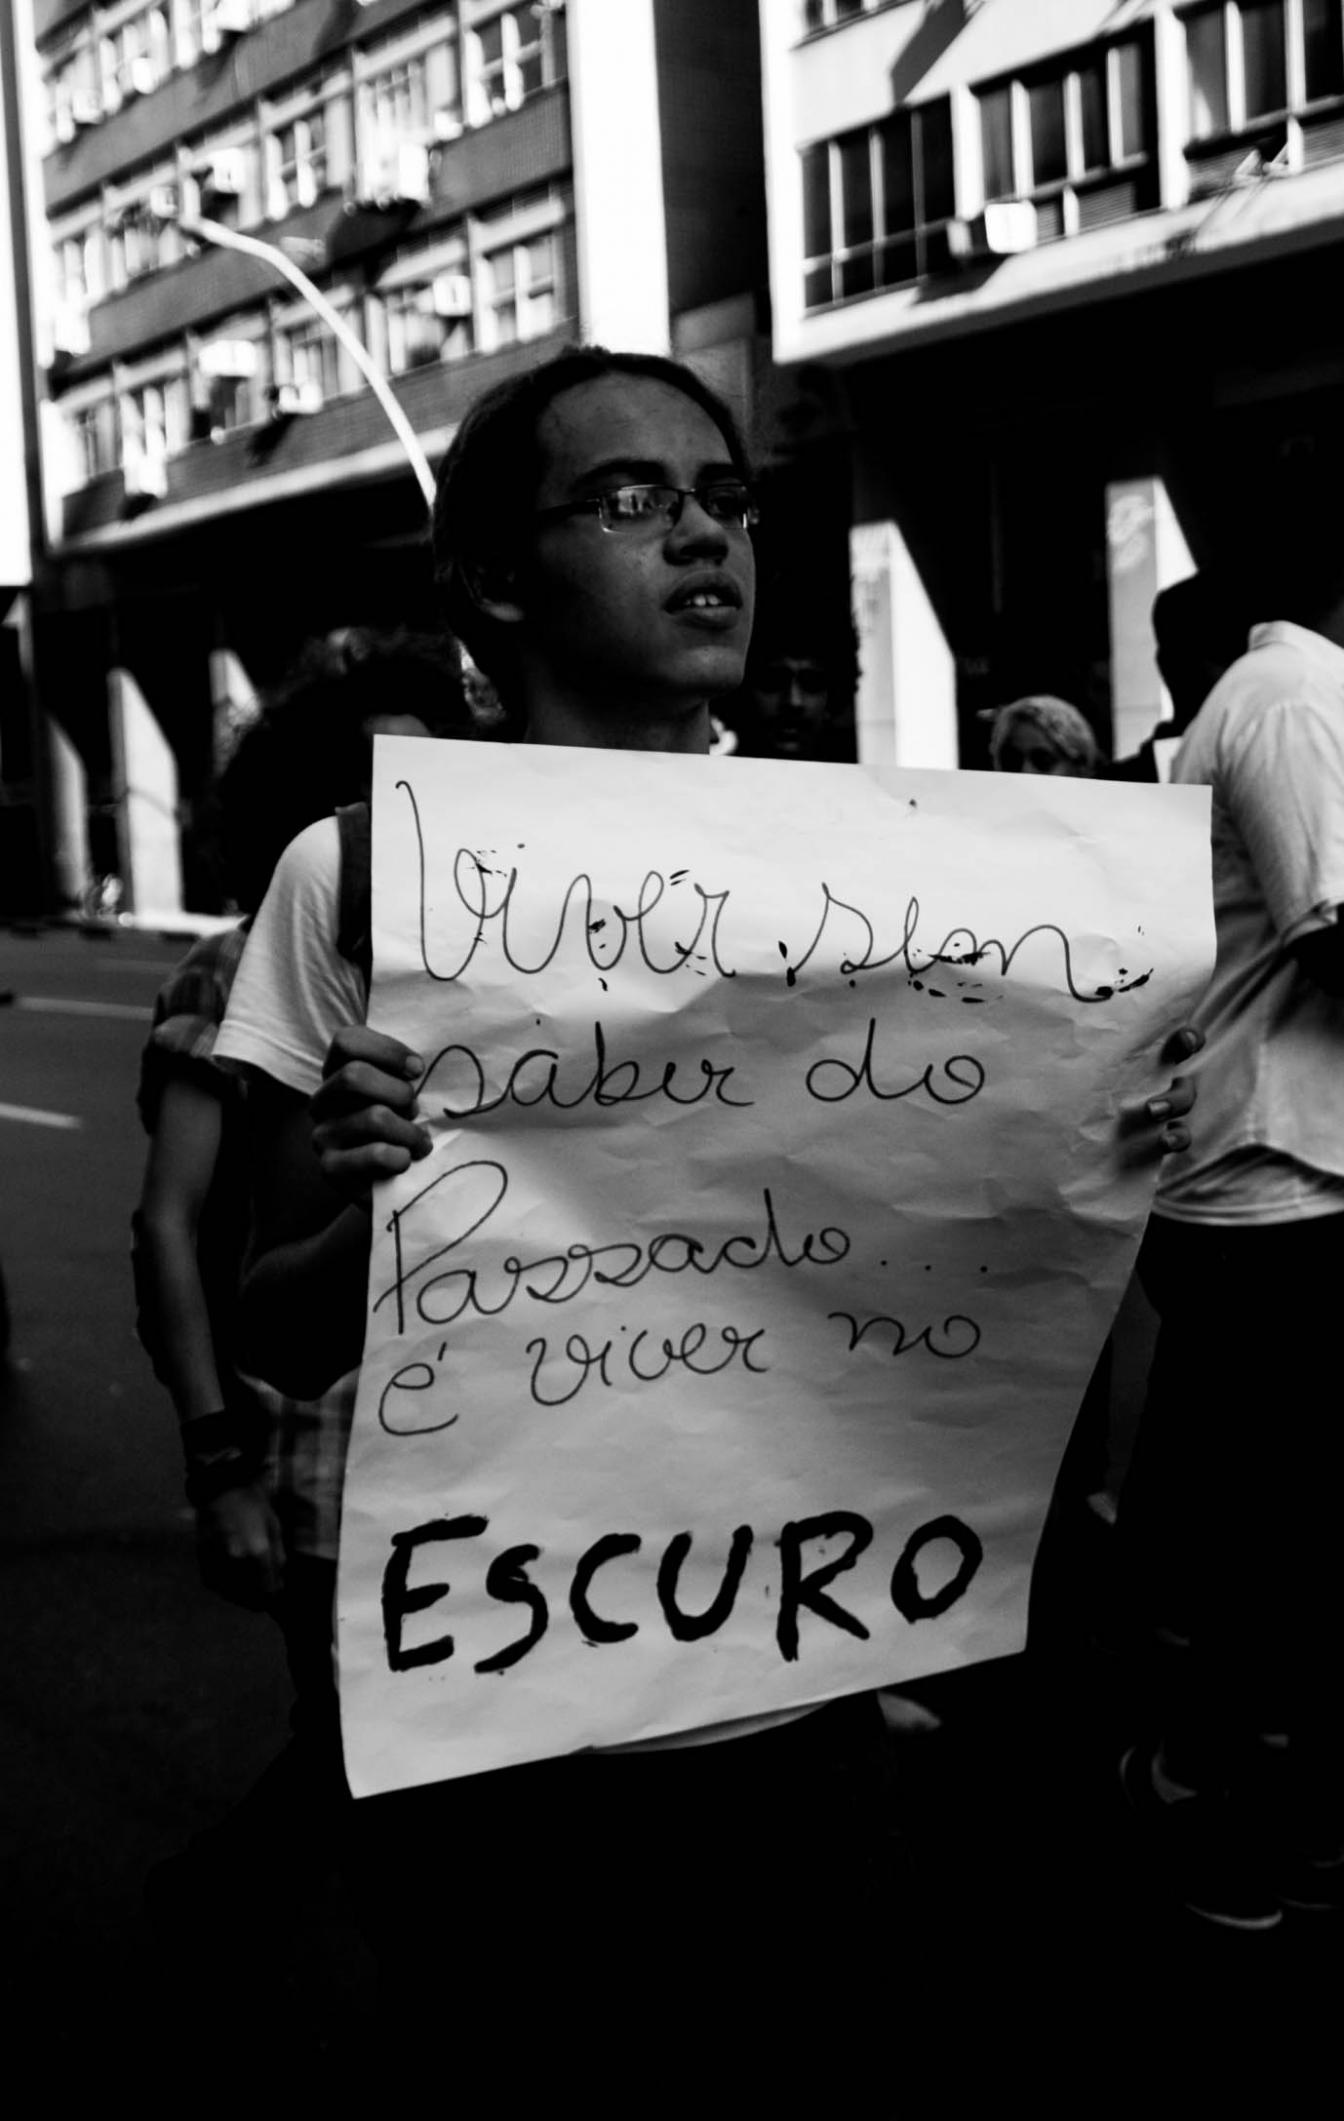 Viver sem
saber do
Passado...
é viver no
ESCURO